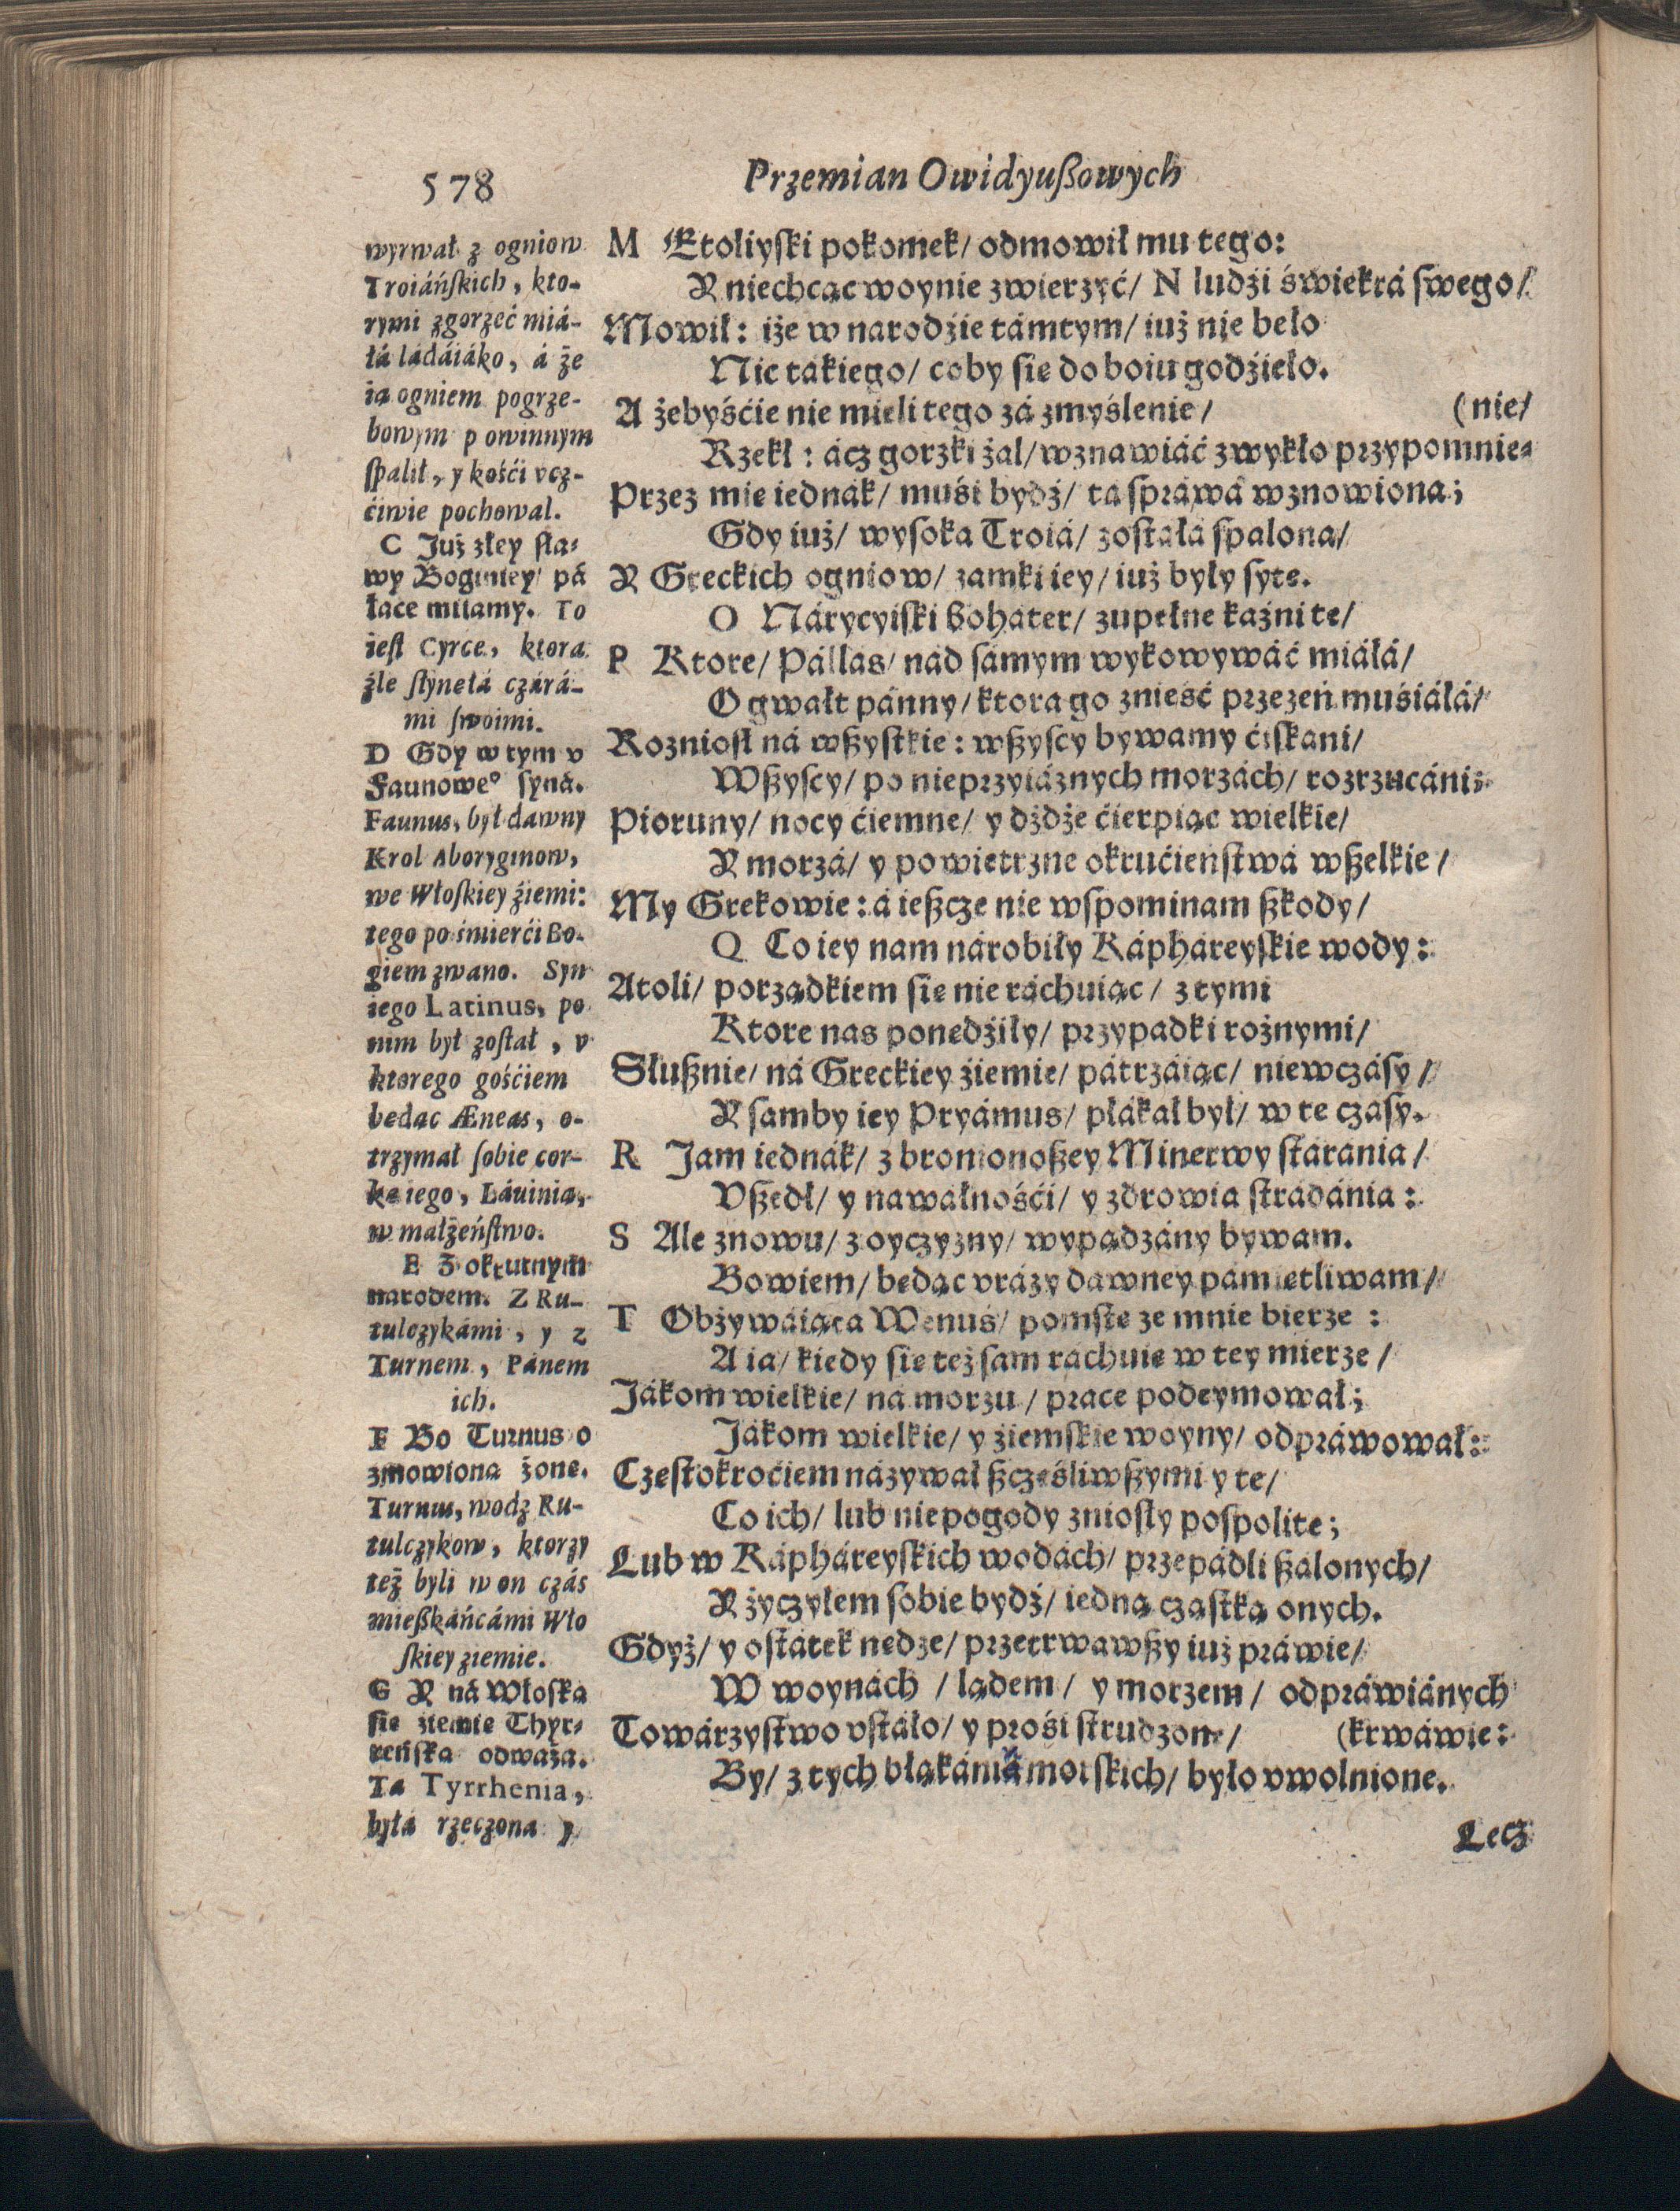 578
Przemian Owidyußowych
wyrwał z ogniow
Troiáńſkich, kto-
rymi zgorzeć miá-
łá ládáiáko, á że
ią ogniem pogrze-
bowym powinnym
ſpalił, y kośći vcz-
ćiwie pochowal.
C Już złey ſła-
wy Boginiey pá
łace mitamy. To
ieſt Cyrce, ktora
źle ſłynełá czárá-
mi ſwoimi.
D Gdy w tym v
Faunoweº ſyná.
Faunus, był dawny
Krol Aboryginow,
we Włoſkiey źiemi:
tego po śmierći Bo-
giem zwano. Syn
iego Latinus, po
nim był zoſtał, v
ktorego gośćiem
bedąc Æneas, o-
trzymał ſobie cor-
kę iego, Láuinią,
w małżeńſtwo.
E Z okrutnym
narodem. Z Ru-
tulczykámi, y z
Turnem, Pánem
ich.
F Bo Turnus o
zmowiona żone.
Turnus, wodz Ru-
tulczykow, ktorzy
też byli w on czás
mießkáńcámi Wło
ſkiey ziemie.
G Y ná Włoſka
ſie ziemie Thyr-
reńſka odważa.
Ta Tyrrhenia,
byłá rzeczona y
M Etoliyſki pokomek/ odmowił mu tego:
Y niechcąc woynie zwierzyć/ N ludźi świekrá ſwego/
Mowił: iże w narodźie támtym/ iuż nie beło
Nic tákiego/ coby ſie do boiu godźieło.
A żebyśćie nie mieli tego zá zmyślenie/ (nie/
Rzekł: ácz gorzki żal/ wznawiáć zwykło przypomnie-
Przez mie iednák/ muśi bydź/ ta ſpráwá wznowiona;
Gdy iuż/ wyſoka Troiá/ zoſtáłá ſpalona/
Y Greckich ogniow/ zamki iey/ iuż były ſyte.
O Nárycyiſki Boháter/ zupełne kaźni te/
P Ktore/ Pállas/ nád ſámym wykowywáć miáłá/
O gwałt pánny/ ktora go znieść przezeń muśiáłá/
Rozniosł ná wßyſtkie: wßyſcy bywamy ćiſkani/
Wßyſcy/ po nieprzyiáznych morzách/ rozrzucáni:
Pioruny/ nocy ćiemne/ y dżdże ćierpiąc wielkie/
Y morzá/ y powietrzne okrućieńſtwá wßelkie/
My Grekowie: á ießcze nie wſpominam ßkody/
Q Co iey nam nárobiły Káphareyſkie wody:
Atoli/ porządkiem ſie nie ráchuiąc/ z tymi
Ktore nas ponedźiły/ przypadki rożnymi/
Słußnie/ ná Greckiey źiemie/ pátrzáiąc/ niewczáſy/
Y ſamby iey Pryámus/ płákał był/ w te czáſy.
R Jam iednák/ z bronionoßey Minerwy ſtárania/
Vßedł/ y nawałnośći/ y zdrowia ſtradánia:
S Ale znowu/ z oyczyzny/ wypądzány bywam.
Bowiem/ bedąc vrázy dawney pámietliwam/
T Obżywáiąca Wenus/ pomſte ze mnie bierze:
A ia/ kiedy ſie też ſam ráchuie w tey mierze/
Jákom wielkie/ ná morzu/ prace podeymował;
Jákom wielkie/ y źiemſkie woyny/ odpráwował:
Czeſtokroćiem názywał ßcześliwßymi y te/
Co ich/ lub niepogody znioſły poſpolite;
Lub w Káphareyſkich wodách/ przepádli ßalonych/
Y życzyłem ſobie bydź/ iedną cząſtką onych.
Gdyż/ y oſtátek nedze/ przetrwawßy iuż práwie/
W woynách/ lądem/ y morzem/ odpráwiánych
Towárzyſtwo vſtáło/ y prośi ſtrudzone/ (krwáwie:
By/ z tych błąkánia morſkich/ było vwolnione.
Lecz